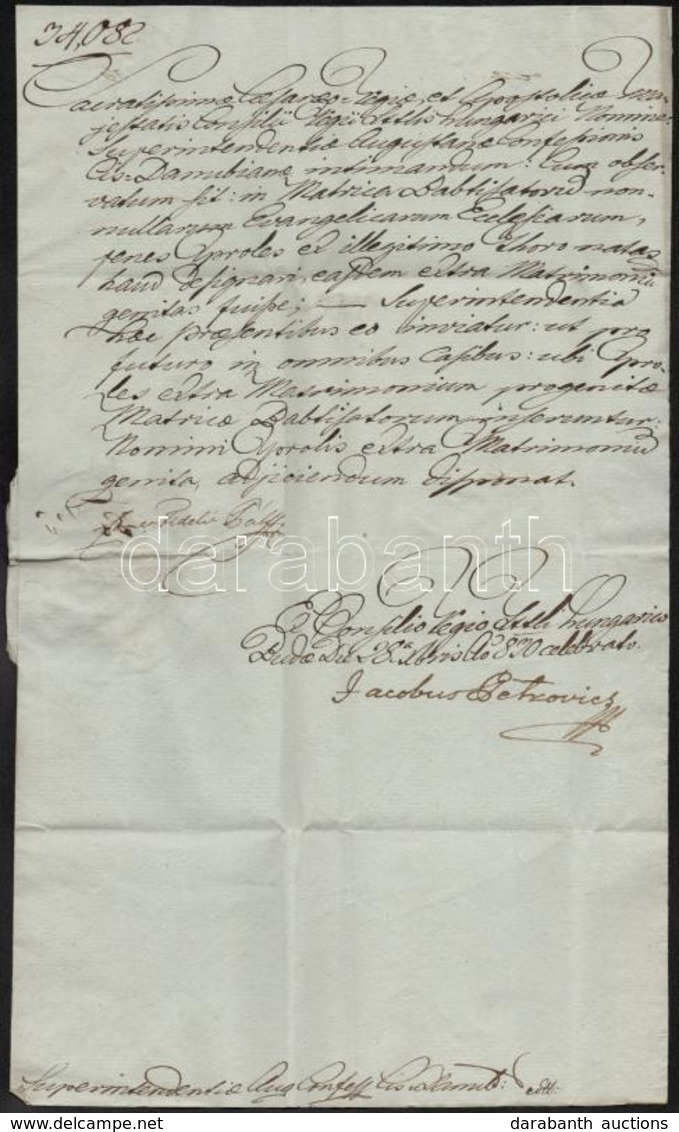 34,082
Sacratissimae Caesareo-Regiae, et Apostolicae Ma-
jestatis Consilii Regii Lttlis Hungarici Nomine:
Superintendentiae Augustanae Confessionis
Cis-Danubianae intimandum: Cum obser-
vatum sit: in Matrica Babtisatorum non-
nullarum Evangelicarum Ecclesiarum,
penes Proles ex illegitimo thoro natas
haud designari, easdem extra Matrimonium
genitas fuisse; — Superintendentia
haec praesentibus eo inviatur: ut pro
futuro in omnibus Casibus: ubi Pro-
les extra Matrimonium progenitae
Matricae Babtisatorum inseruntur:
Nomini Prolis extra Matrimonium
genita, adjiciendum disponat.
Fidelis Pálffy
darabanth
E Consilio Regio Lttli Hungarico
Budae Die 28a 830 celebrato.
Jacobus Petrovics
Superintendentiae Aug Confess Cis Danub:
darabanth auctions